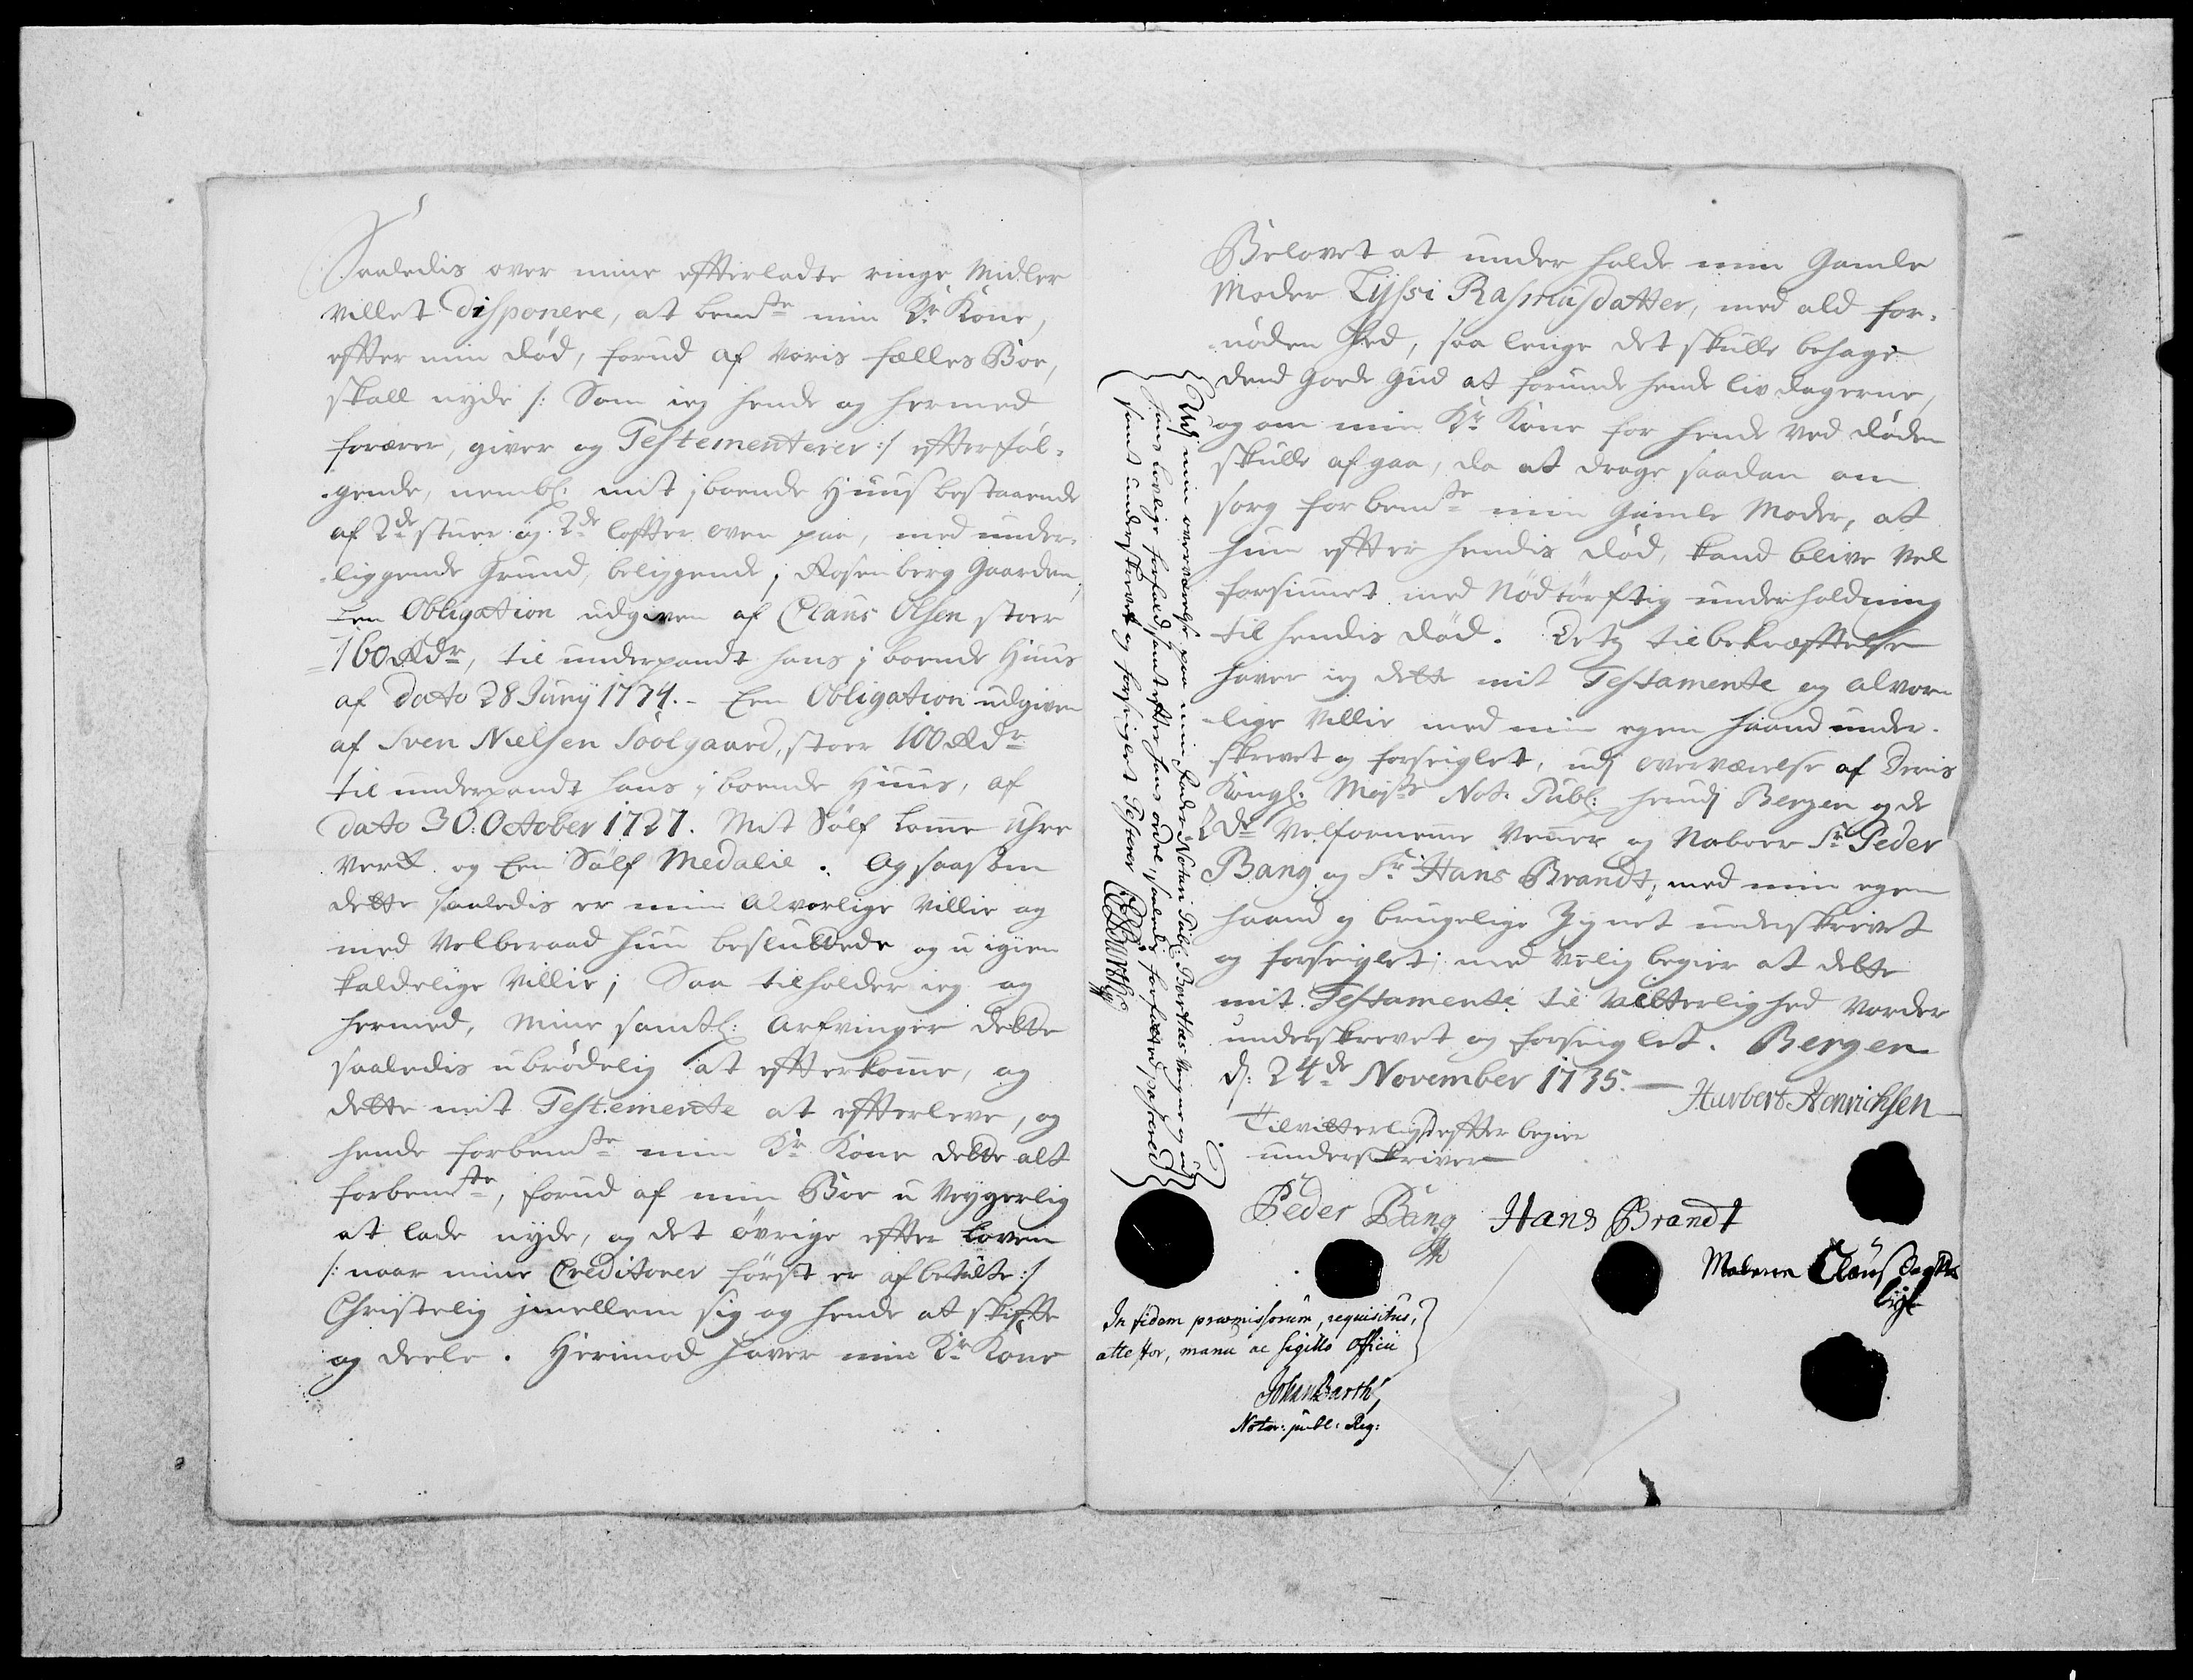 Saaledis over mine efterladte ringe Midler
Villet disponere, at bemte min Kr Kone,
effter min död, forud af voris fælles Boe,
skall nyde /: Som ieg hende og hermed
forærer, giver og Testementerer :/ effterföl-
gende, nembl: mit iboende Huus bestaaende
af 2de stuer og 2de loffter oven paa, med under-
liggende Grund, beliggende i Rosenberg Gaarden,
Een Obligation udgiven af Claus Olsen stoer
160 Rdr, til underpandt hans iboende Huus
af dato 28 Junij 1734. - Een Obligation udgiven
af Sven Nielsen Soölgaard, stoer 100 Rdr
til underpandt hans iboende Huus, af
dato 30: October 1727. Mit Sölf Lomme Uhr
verk og Een Sölf Medalie. Og saasom
dette saaledis er min Alvorlige Villie og
med Velberaad Huu besluttede og u igien
kaldelige Villie; Saa tilholder ieg og
hermed, mine samtl: Arfvinger dette
saaledis ubrödelig at effterkomme, og
dette mit Testemente at effterleve, og
hende forbemte min Kr Kone dette alt
forbemte, forud af min Boe u Veygerlig
at lade nyde, og det övrige effter Loven
/: naar mine Creditorer först er afbetalte :/
Christelig imellem sig og hende at skiffte
og deele. Herimod haver min Kr Kone
Belovet at under holde min Gamle
Moder Lyssi Rasmusdatter, med ald for-
nöden Hed, saa lenge det skulle behage
dend Gode Gud at forunde hende liv dagerne,
og om min Kr Kone for hende ved döden
skulle afgaa, da at drage saadan om
sorg for bemte min Gamle Moder, at
hun effter hendis död, kand blive vel
forsiunet med Nödtörftig underholdning
til hendis död. Dets til bekræfftelse
haver ieg dette mit Testamente og alvor-
lige Villie med min egen haand under-
skrevet og forseiglet, udj overværelse af Deris
Kongl: Maj:ts Not. Publ: herudj Bergen og de
2de Velfornemme Venner og Naboer Sr Peder
Bang og Sr Hans Brandt, med min egen
haand og brugelige Zignet underskrevet
og forseiglet; med Venlig begier at dette
mit Testamente til Vitterlighed vorder
underskrevet og forseiglet. Bergen
d: 24de November 1735. Harbert Henrichsen
Til vitterlighed effter begier
underskriver
Peder Bang Hans Brandt
Udj min overværelse paa min Faders Notari Publ: Barthes Vegne og udj
hans lovlige forfald, samt effter hans ordre, saaledis forfattet, passeret
samt underskrevet og forseiglet Testerer Barth
In fidem præmissorum, requisitus,
attestor, manu ac sigillo officii
Johan Barth,
Notar: publ: Reg: